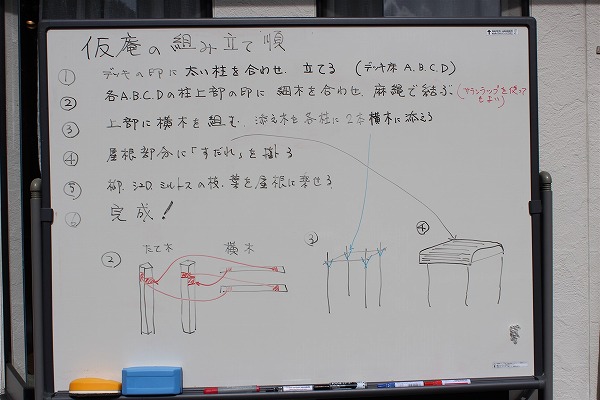 仮庵の組み立て順
① デッキの印に太い柱を合わせ、立てる (デッキ床 A.B.C.D)
② 各A.B.C.Dの柱上部の印に 細木を合わせ、麻縄で結ぶ
③ 上部に横木を組む、添え木を各柱に2本横木に添える
④ 屋根部分に「すだれ」を掛ける
⑤ 柳、シュロ、ミルトスの枝、葉を屋根に乗せる
⑥ 完成!
② たて木 横木 ③ ④